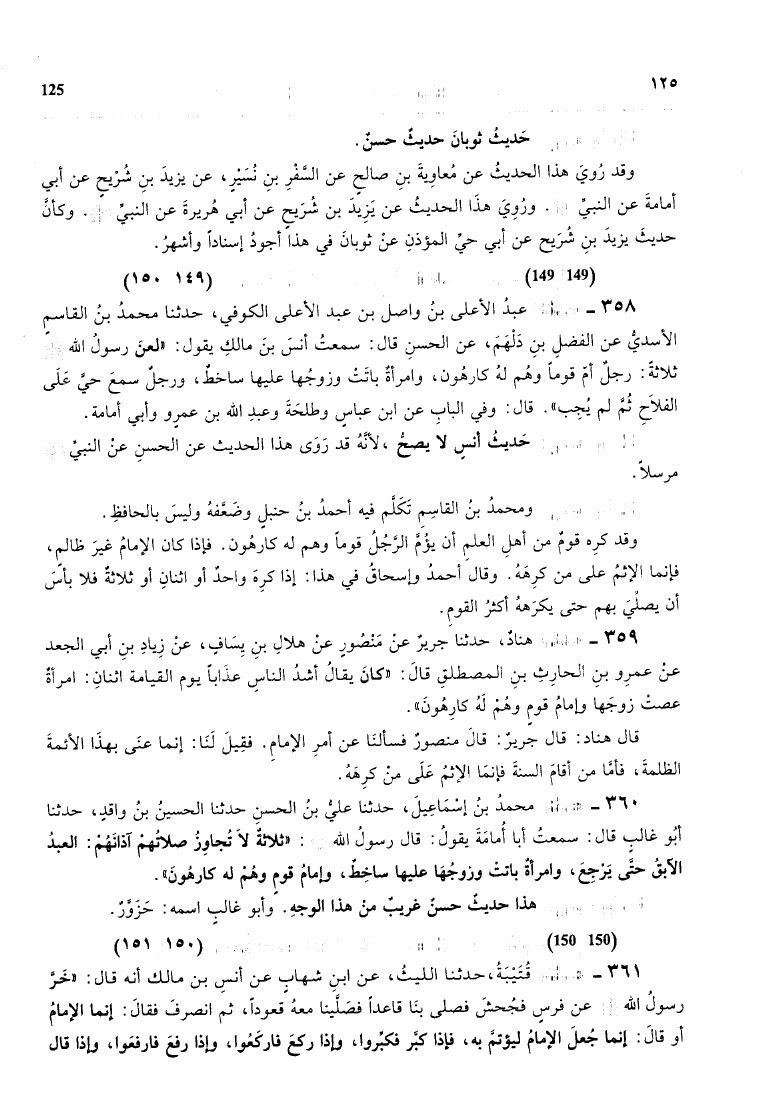 ١٢٥ 125
حَديثُ ثوبانَ حديثٌ حسنٌ.
وقد رُويَ هذا الحديثُ عن مُعاوِيةَ بنِ صالحٍ عن السَّفْرِ بنِ نُسَيْرٍ، عن يزيدَ بنِ شُرَيْحٍ عن أبي
أمامةَ عن النبيِّ . ورُوِيَ هذَا الحديثُ عن يَزِيدَ بن شُرَيحٍ عن أبي هُريرةَ عن النبيِّ . وكأنَّ
حديثَ يزيدَ بنِ شُرَيح عن أبي حيِّ المؤذنِ عنْ ثوبانَ في هذا أجودُ إسناداً وأشهرُ.
(149 149) (١٤٩ ١٥٠)
٣٥٨ ـ عبدُ الأعلى بنُ واصلِ بن عبد الأعلى الكوفي، حدثنا محمدُ بنُ القاسمِ
الأسديُّ عن الفضلِ بنِ دَلْهَمَ، عن الحسنِ قال: سمعتُ أنسَ بنَ مالكٍ يقول: «لعنَ رسولُ الله
ثلاثةً: رجلٌ أمَّ قوماً وهُم لهُ كارهُون، وامرأةٌ باتَتْ وزوجُها عليها ساخطٌ، ورجلٌ سمعَ حيَّ عَلَى
الفلاَحِ ثُمَّ لم يُجِب». قال: وفي البابِ عن ابن عباسٍ وطلحَةَ وعبدِ الله بن عمرٍو وأبي أمامة.
حَديثُ أنسٍ لا يصحُّ، لأنَّهُ قد رَوَى هذا الحديث عن الحسنِ عنْ النبيِّ
مرسلاً.
ومحمدُ بنُ القاسِمِ تَكلَّم فيه أحمدُ بنُ حنبلٍ وضَعَّفهُ وليسَ بالحافظِ.
وقد كرِه قومٌ من أهلِ العلمِ أن يؤُمَّ الرَّجُلُ قوماً وهم له كارهُون. فإذا كان الإمامُ غيرَ ظالمٍ،
فإنما الإثمُ على من كرِهَهُ. وقال أحمدُ وإسحاقُ في هذا: إذا كرِهَ واحدٌ أو اثنانِ أو ثلاثةٌ فلا بأسَ
أن يصلِّيَ بهم حتى يكرَههُ أكثرُ القومِ.
٣٥٩ ـ هنادٌ، حدثنا جريرٌ عنْ مَنْصُورٍ عنْ هلالِ بنِ يِسَافٍ، عنْ زيادِ بنِ أبي الجعد
عنْ عمرِو بنِ الحارثِ بنِ المصطلقِ قالَ: «كانَ يقالُ أشدُّ الناسِ عذَاباً يوم القيامة اثنانِ: امرأةٌ
عصتْ زوجَها وإمامُ قومٍ وهُمْ لَهُ كارِهُونَ».
قال هناد: قال جريرٌ: قالَ منصورٌ فسألنَا عن أمرِ الإمامِ. فقِيلَ لَنَا: إنما عنَى بهذَا الأئمةَ
الظلمةَ، فأمَّا من أقامَ السنةَ فإنمَا الإثمُ عَلَى منْ كرِهَهُ.
٣٦٠ ـ محمدُ بنُ إسْمَاعِيلَ، حدثنا عليُّ بنُ الحسنِ حدثنا الحسينُ بنُ واقدٍ، حدثنا
أبُو غالبٍ قال: سمعتُ أبا أُمامَةَ يقولُ: قال رسولُ الله : «ثلاثةٌ لاَ تُجاوِزُ صلاتُهمْ آذانَهُمْ: العبدُ
الآبقُ حتَّى يَرْجِعَ، وامرأةٌ باتتْ وزوجُهَا عليها ساخِطٌ، وإمامُ قومٍ وهُمْ له كارهُونَ».
هذا حديثٌ حسنٌ غريبٌ منْ هذا الوجهِ. وأبو غالبٍ اسمه: حَزَوَّرٌ.
(150 150) (١٥٠ ١٥١)
٣٦١ ـ قُتَيْبَةُ، حدثنا الليثُ، عن ابنِ شهابٍ عن أنسِ بن مالك أنه قال: «خَرَّ
رسولُ الله عن فرسٍ فجُحشَ فصلى بنَا قاعداً فصَلَّينا معهُ قعوداً، ثم انصرفَ فقالَ: إنما الإمامُ
أو قالَ: إنما جُعلَ الإمامُ ليؤتمَّ به، فإذا كبَّر فكبِّروا، وإذا ركعَ فاركَعُوا، وإذا رفعَ فارفعَوا، وإذا قال